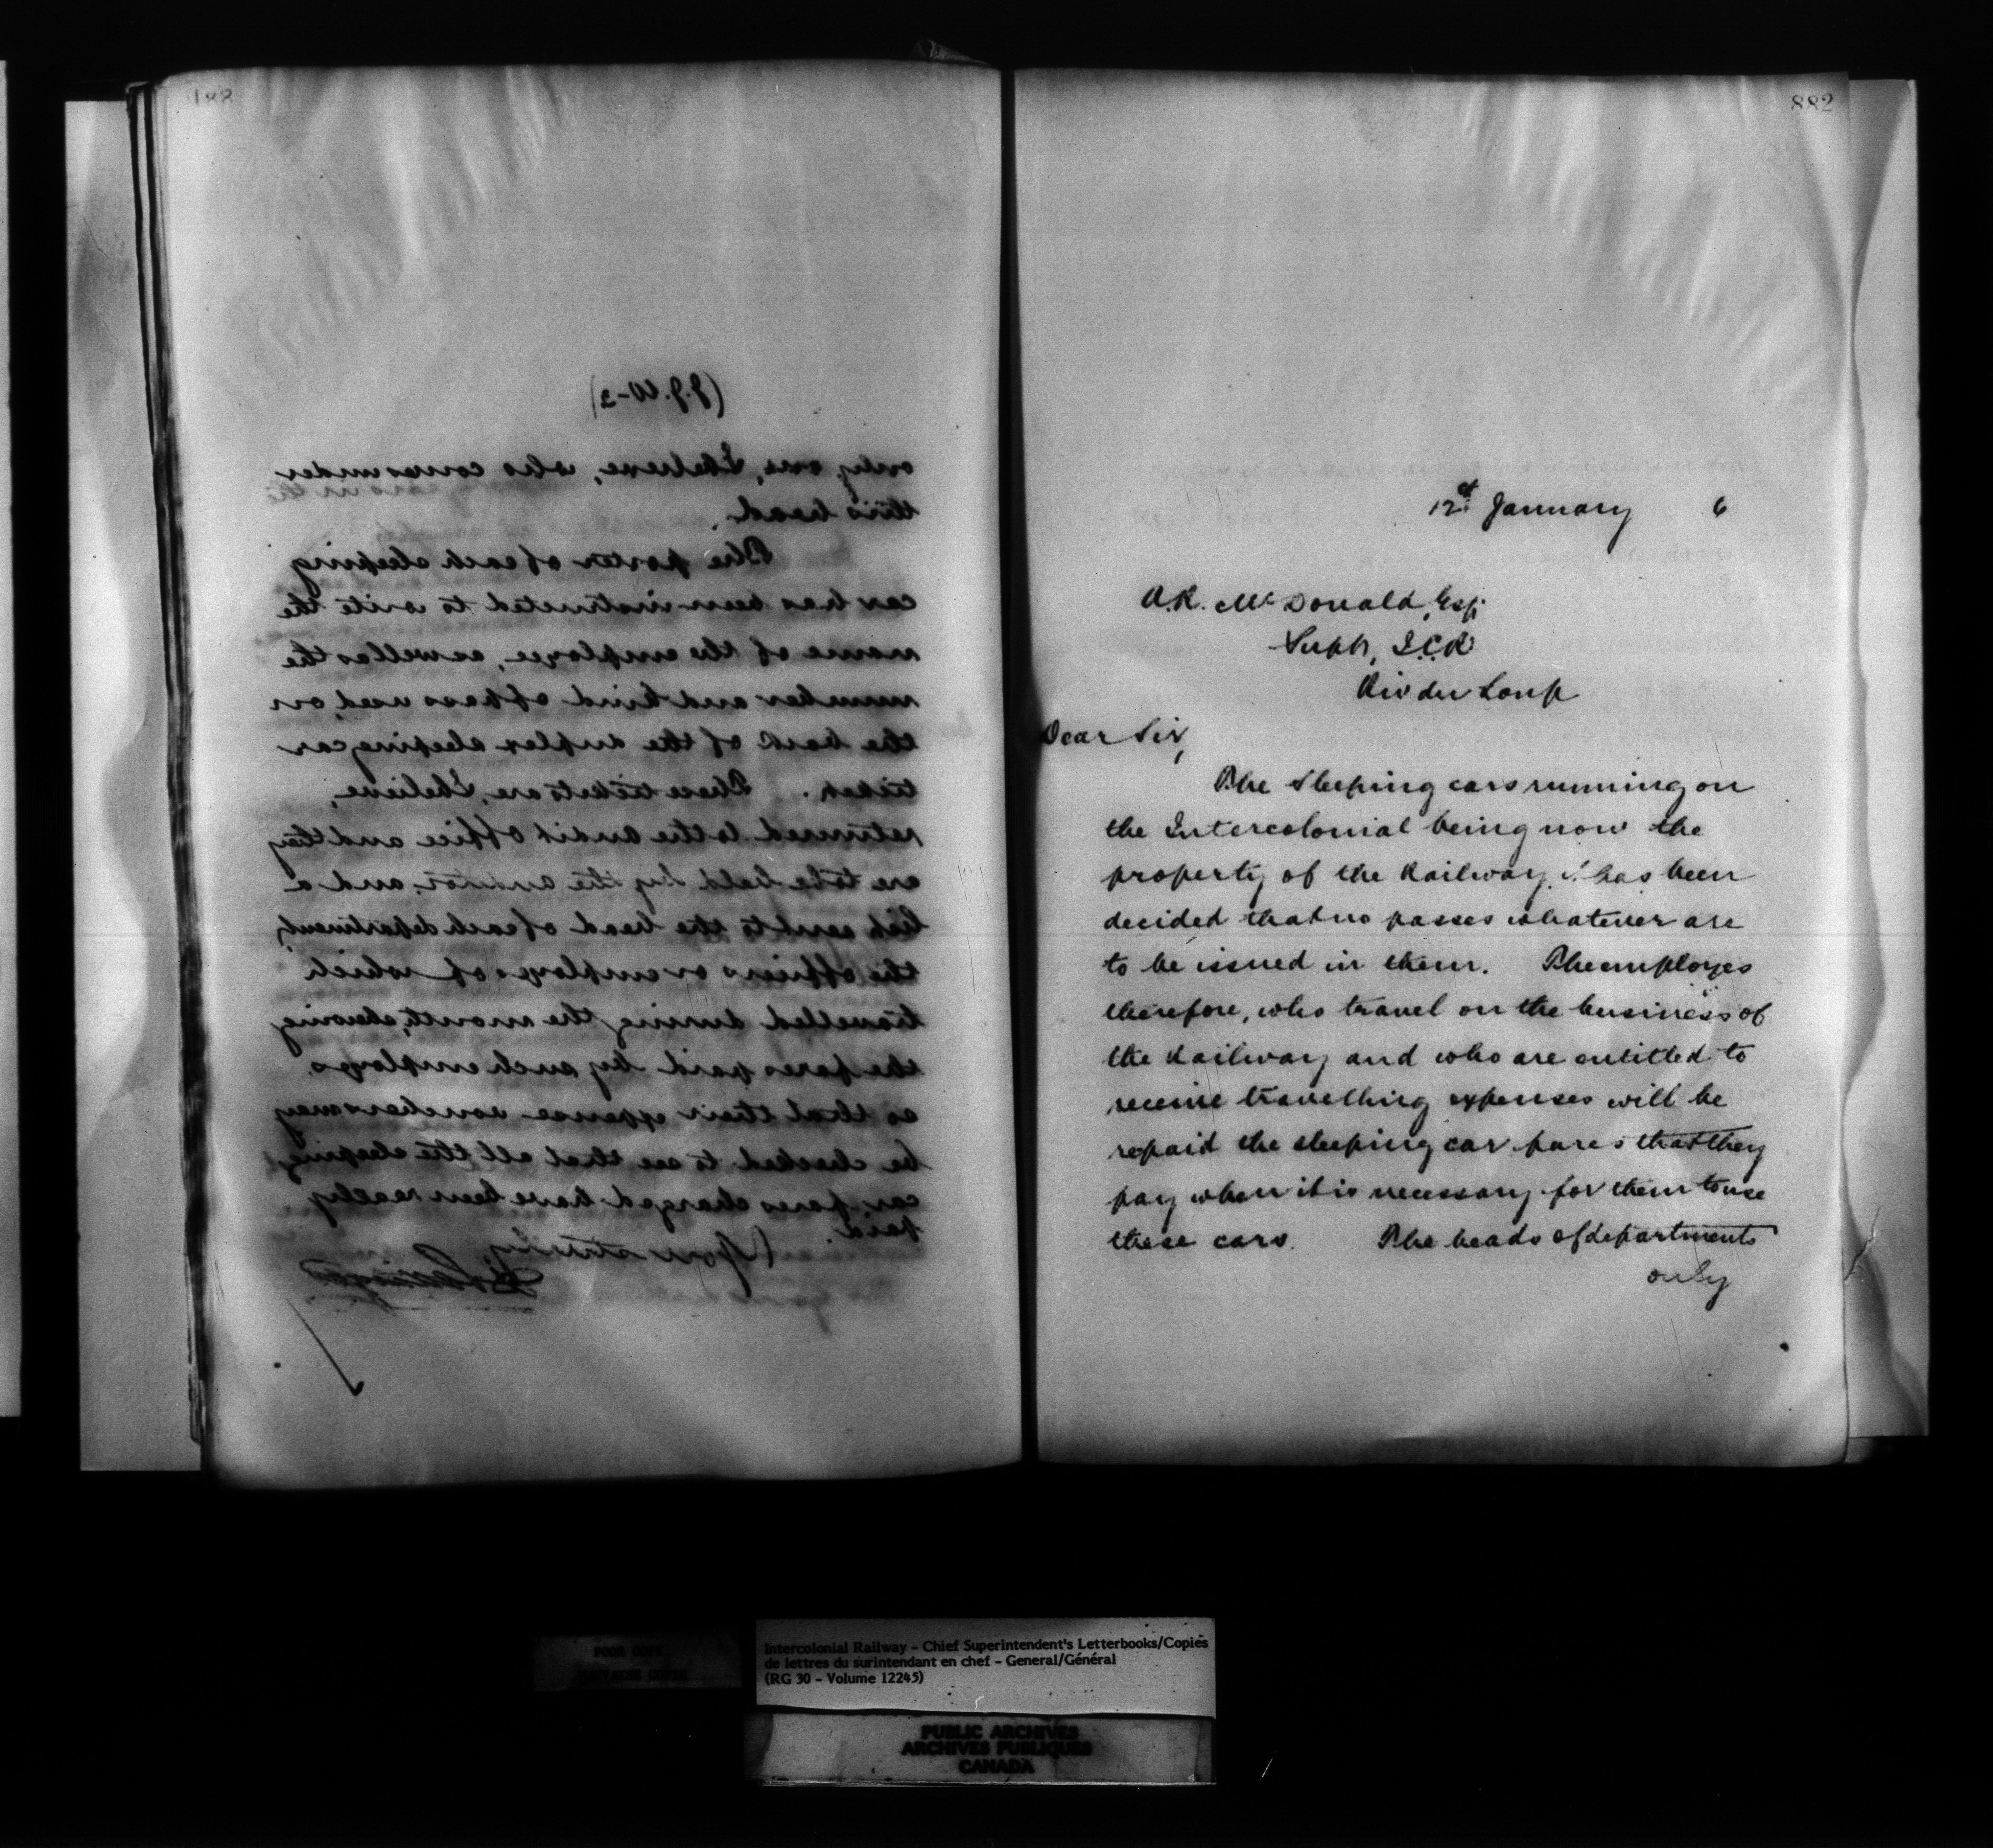 881
(J.J.W-2)
only one, I believe, who comes under
this head.
The porter of each sleeping
car has been instructed to write the
name of the employee, as well as the
number and kind of pass used, on
the back of the duplex sleeping car
ticket. These tickets are, I believe,
returned to the audit office and they
are to be held by the auditor, and a
list sent to the head of each department,
the officers or employes of which
travelled during the month, showing
the fares paid by such employes,
so that their expense vouchers may
be checked to see that all the sleeping
car fares charged have been really
paid.
Yours truly,
882
12th January 6
A.R. McDonald, Esq.
Supt, I.C.R
Riv du Loup
Dear Sir,
The sleeping cars running on
the Intercolonial being now the
property of the Railway it has been
decided that no passes whatever are
to be issued in them. The employes
therefore, who travel on the business of
the Railway and who are entitled to
receive travelling expenses will be
repaid the sleeping car fares that they
pay when it is necessary for them to use
these cars. The heads of departments
only
Intercolonial Railway - Chief Superintendent's Letterbooks/Copies
de lettres du surintendant en chef - General/Général
(RG 30 - Volume 12245)
PUBLIC ARCHIVES
ARCHIVES PUBLIQUES
CANADA